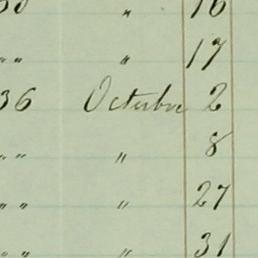 30 " 16
" " " 17
36 Octubre 2
" " " 8
" " " 27
" " " 31